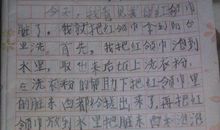 今天，我看见我的红领巾
脏了。我就把红领巾拿到阳台
上洗。首先，我把红领巾泡到
水里，取出来后抹上洗衣粉，
在洗衣粉的帮助下把红领巾里
的脏东西都给钱出来了，再把红
领巾放到水里把脏东西洗